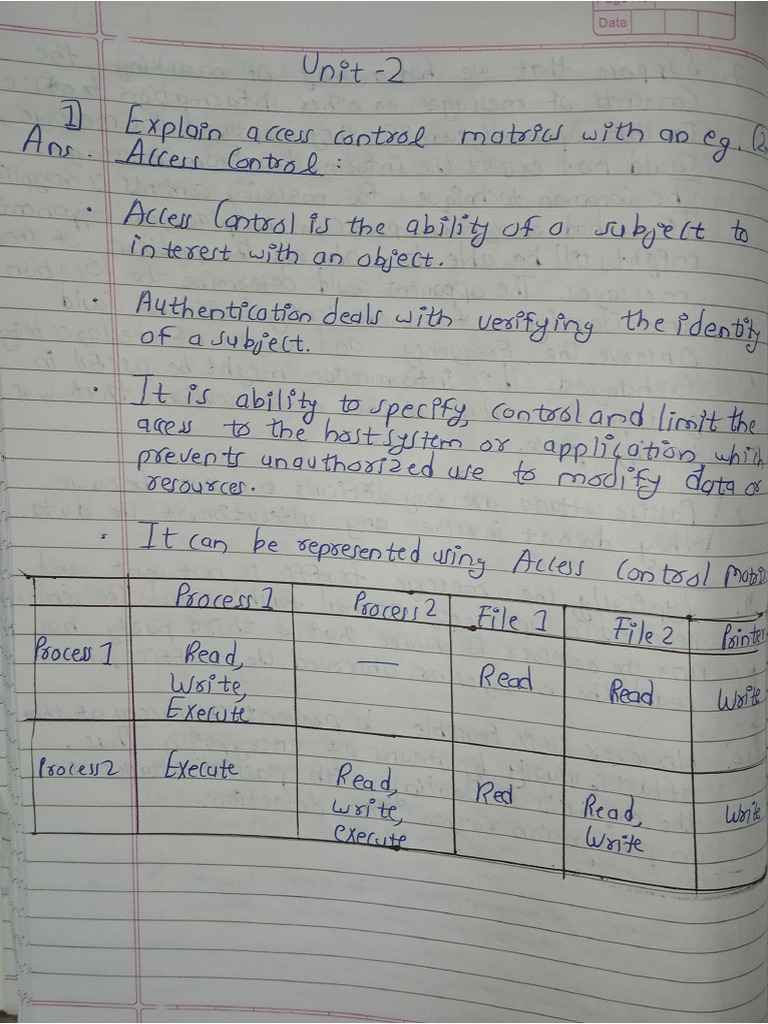 Date
Unit-2
1] Explain access control matrics with an eg. (2
Ans. Access Control:
· Access Control is the ability of a subject to
interest with an object.
· Authentication deals with verifying the identity
of a subject.
· It is ability to specify, control and limit the
acess to the host system or application which
prevents unauthorized use to modify data or
resources.
· It can be represented using Access Control
Process 1 Process 2 File 1 File 2 Printer
Process 1 Read, — Read Read Write
Write,
Execute
Process 2 Execute Read, Red Read, Write
write, Write
execute